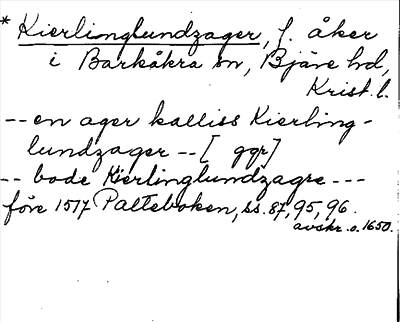 * Kierlinglundzager, f. åker
i Barkåkra sn, Bjäre hd,
Krist. l.
-- en ager kalliss Kierling-
lundzager -- [ ggr]
-- bode Kierlinglundzagre ---
före 1517 Palteboken, ss. 87, 95, 96.
avskr. o. 1650.